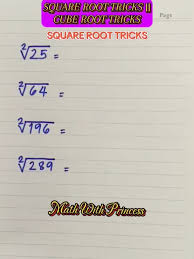 SQUARE ROOT TRICKS ||
CUBE ROOT TRICKS
Page
SQUARE ROOT TRICKS
²√25 =
²√64 =
²√196 =
²√289 =
Math With Princess